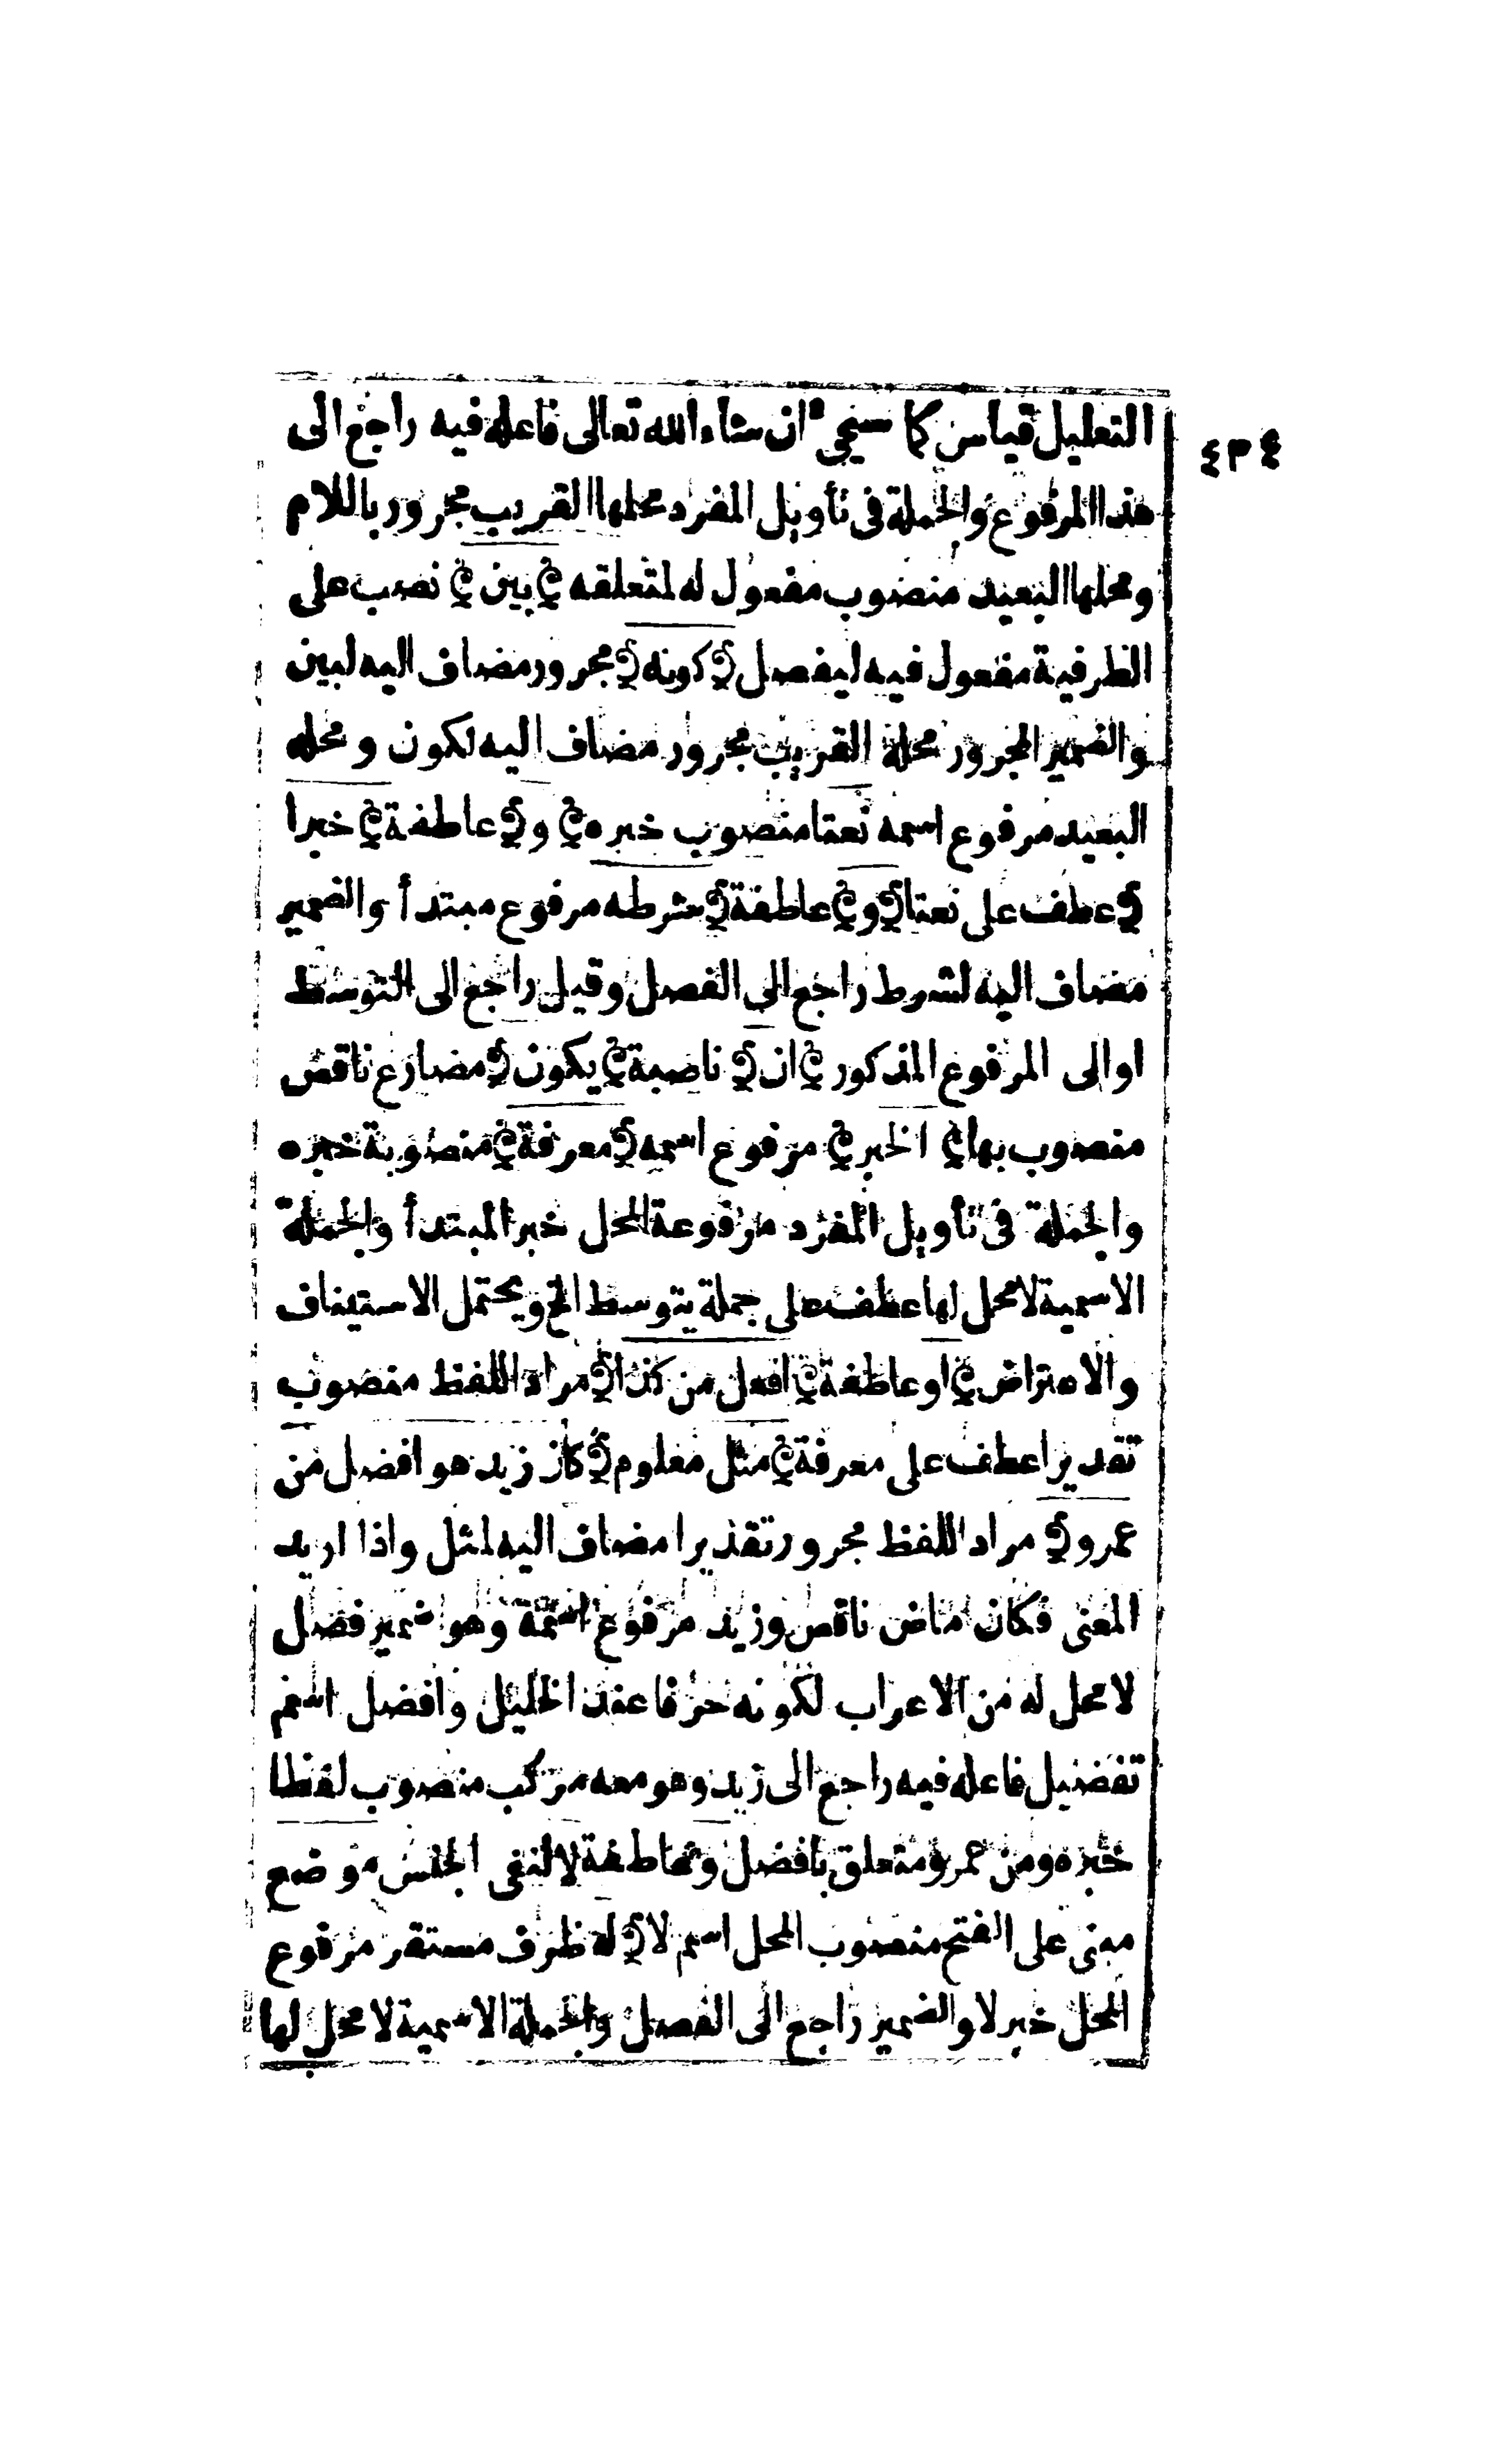 ٤٣٤
التعليل قياس كما سيجئ ان شاء الله تعالى فاعله فيه راجع الى
هذا المرفوع والجملة فى تأويل المفرد محلها القريب مجرور باللام
ومحلها البعيد منصوب مفعول له لمتعلقه ﴿ بين ﴾ نصب على
الظرفية مفعول فيه ليفصل ﴿ كونه ﴾ مجرور مضاف اليه لبين
والضمير المجرور محله القريب مجرور مضاف اليه لكون ومحله
البعيد مرفوع اسمه نعتا منصوب خبره ﴿ و ﴾ عاطفة ﴿ خبرا
﴾ عطف على نعتا ﴿ و ﴾ عاطفة ﴿ شرطه مرفوع مبتدأ والضمير
مضاف اليه لشرط راجع الى الفصل وقيل راجع الى التوسط
او الى المرفوع المذكور ﴿ ان ﴾ ناصبة ﴿ يكون ﴾ مضارع ناقص
منصوب بها ﴿ الخبر ﴾ مرفوع اسمه ﴿ معرفة ﴾ منصوبة خبره
والجملة فى تأويل المفرد مرفوعة المحل خبر المبتدأ والجملة
الاسمية لا محل لها عطف على جملة يتوسط الخ ويحتمل الاستيناف
والاعتراض ﴿ او عاطفة ﴾ افعل من كذا ﴾ مراد اللفظ منصوب
تقديرا عطف على معرفة ﴿ مثل معلوم ﴾ كان زيد هو افضل من
عمرو ﴾ مراد اللفظ مجرور تقديرا مضاف اليه لمثل واذا اريد
المعنى فكان ماض ناقص وزيد مرفوع اسمه وهو ضمير فصل
لا محل له من الاعراب لكونه حرفا عند الخليل وافضل اسم
تفضيل فاعله فيه راجع الى زيد وهو معه مركب منصوب لفظا
خبره ومن عمرو متعلق بافضل و عاطفة لا لنفى الجنس موضع
مبنى على الفتح منصوب المحل اسم لا ﴿ له ظرف مستقر مرفوع
المحل خبر لا والضمير راجع الى الفصل والجملة الاسمية لا محل لها